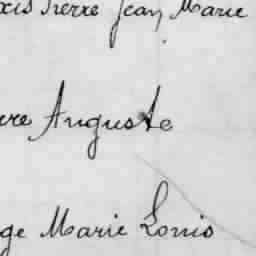 xis Pierre Jean Marie
re Auguste
ge Marie Louis